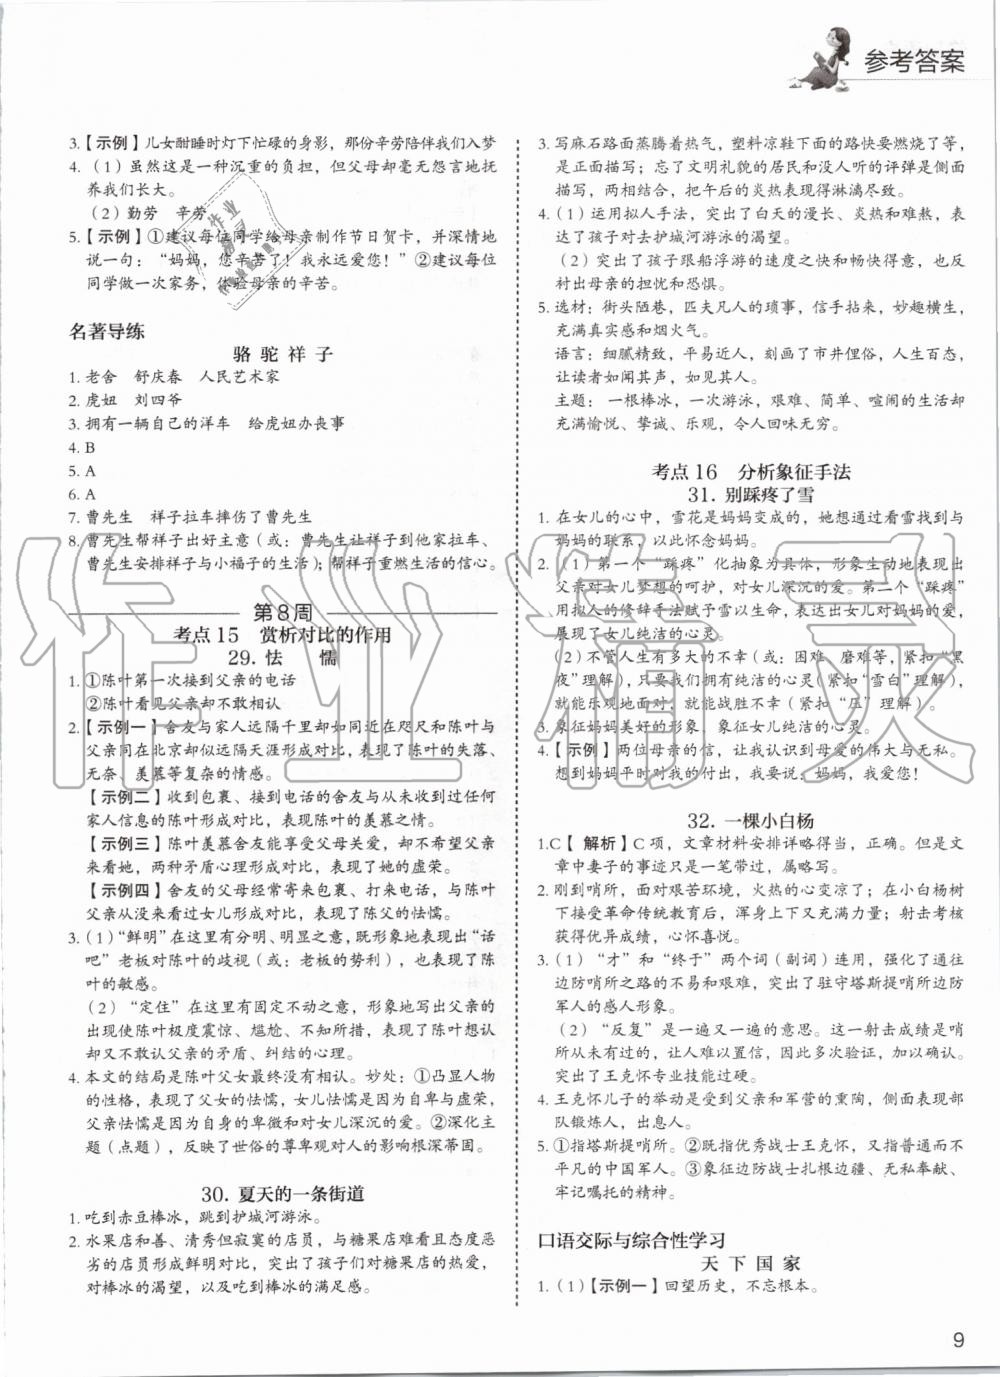 参考答案
3.【示例】儿女酣睡时灯下忙碌的身影，那份辛劳陪伴我们入梦
4.（1）虽然这是一种沉重的负担，但父母却毫无怨言地抚
养我们长大。
（2）勤劳　辛劳
5.【示例】①建议每位同学给母亲制作节日贺卡，并深情地
说一句：“妈妈，您辛苦了！我永远爱您！”②建议每位
同学做一次家务，体验母亲的辛苦。
名著导练
骆驼祥子
1. 老舍　舒庆春　人民艺术家
2. 虎妞　刘四爷
3. 拥有一辆自己的洋车　给虎妞办丧事
4. B
5. A
6. A
7. 曹先生　祥子拉车摔伤了曹先生
8. 曹先生帮祥子出好主意（或：曹先生让祥子到他家拉车、
曹先生安排祥子与小福子的生活）；帮祥子重燃生活的信心。
第8周
考点15　赏析对比的作用
29. 怯　懦
1. ①陈叶第一次接到父亲的电话
②陈叶看见父亲却不敢相认
2.【示例一】舍友与家人远隔千里却如同近在咫尺和陈叶与
父亲同在北京却似远隔天涯形成对比，表现陈叶的失落、
无奈、羡慕等复杂的情感。
【示例二】收到包裹、接到电话的舍友与从未收到过任何
家人信息的陈叶形成对比，表现陈叶的羡慕之情。
【示例三】陈叶羡慕舍友能享受父母关爱，却不希望父亲
来看她，两种矛盾心理形成对比，表现陈叶的虚荣。
【示例四】舍友的父母经常寄来包裹、打来电话，与陈叶
父亲从没来看过女儿形成对比，表现了陈父的怯懦。
3.（1）“鲜明”在这里有分明、明显之意，既形象地表现出“话
吧”老板对陈叶的歧视（或：老板的势利），也表现了陈
叶的敏感。
（2）“定住”在这里有固定不动之意，形象地写出父亲的
出现使陈叶极度震惊、尴尬、不知所措，表现了陈叶想认
却又不敢认父亲的矛盾、纠结的心理。
4. 本文的结局是陈叶父女最终没有相认。妙处：①凸显人物
的性格，表现了父女的怯懦，女儿怯懦是因为自卑与虚荣，
父亲怯懦是因为自身的卑微和对女儿深沉的爱。②深化主
题（点题），反映了世俗的尊卑观对人的影响根深蒂固。
30. 夏天的一条街道
1. 吃到赤豆棒冰，跳到护城河游泳。
2. 水果店和善、清秀但寂寞的店员，与糖果店可望不可即、凶
恶的店员形成鲜明对比，突出了孩子们对糖果店的热爱，
对棒冰的渴望，以及吃到棒冰的满足感。
3. 写麻石路面蒸腾着热气，塑料凉鞋下面的路快要燃烧了等，
是正面描写；忘了文明礼貌的居民和没人听的评弹是侧面
描写，两相结合，把午后的炎热表现得淋漓尽致。
4.（1）运用拟人手法，突出了白天的漫长、炎热和难熬，表
达了孩子对去护城河游泳的渴望。
（2）突出了孩子跟船浮游的速度之快和畅快得意，也反
衬出母亲的担忧和恐惧。
5. 选材：街头陋巷，匹夫凡人的琐事，信手拈来，妙趣横生，
充满真实感和烟火气。
语言：细腻精致，平易近人，刻画了市井俚俗，人生百态，
让读者如闻其声，如见其人。
主题：一根棒冰，一次游泳，艰难、简单、喧闹的生活却
充满愉悦、挚诚、乐观，令人回味无穷。
考点16　分析象征手法
31. 别踩疼了雪
1. 在女儿的心中，雪花是妈妈变成的，她想通过看雪找到与
妈妈的联系，以此怀念妈妈。
2.（1）第一个“踩疼”化抽象为具体，形象生动地表现出
父亲对女儿梦想的呵护，对女儿深沉的爱。第二个“踩疼”
用拟人的修辞手法赋予雪以生命，表达出女儿对妈妈的爱，
展现了女儿纯洁的心灵。
（2）不管人生有多大的不幸（或：困难、磨难等，紧扣“黑
夜”理解），只要我们拥有纯洁的心灵（紧扣“雪白”理解），
就能乐观地面对；就能战胜不幸（紧扣“压”理解）。
3. 象征妈妈美好的形象　象征女儿纯洁的心灵。
4.【示例】两位母亲的信，让我认识到母爱的伟大与无私。
想到妈妈平时对我的付出，我要说：妈妈，我爱您！
32. 一棵小白杨
1.C【解析】C项，文章材料安排详略得当，正确。但是文
章中妻子的事迹只是一笔带过，属略写。
2. 刚到哨所，面对艰苦环境，火热的心变凉了；在小白杨树
下接受革命传统教育后，浑身上下又充满力量；射击考核
获得优异成绩，心怀喜悦。
3.（1）“才”和“终于”两个词（副词）连用，强化了通往
边防哨所之路的不易和艰难，突出了驻守塔斯提哨所边防
军人的感人形象。
（2）“反复”是一遍又一遍的意思。这一射击成绩是哨
所从未有过的，让人难以置信，因此多次验证，加以确认。
突出了王克怀专业技能过硬。
4. 王克怀儿子的举动是受到父亲和军营的熏陶，侧面表现部
队锻炼人，出息人。
5. ①指塔斯提哨所。②既指优秀战士王克怀，又指普通而不
平凡的中国军人。③象征边防战士扎根边疆、无私奉献、
牢记嘱托的精神。
口语交际与综合性学习
天下国家
1.（1）【示例一】回望历史，不忘根本。
9